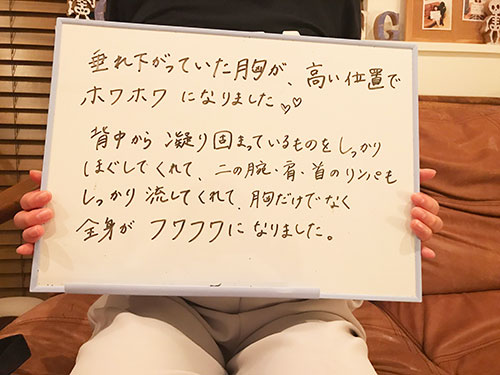 垂れ下がっていた胸が、高い位置で
ホワホワになりました♡♡
背中から凝り固まっているものをしっかり
ほぐしてくれて、二の腕・肩・首のリンパも
しっかり流してくれて、胸だけでなく
全身がフワフワになりました。